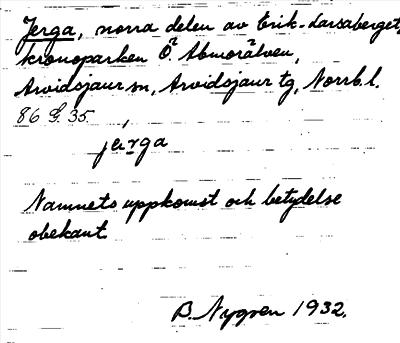 Jerga, norra delen av Erik-Larsaberget,
kronoparken Ö. Abmorälven,
Arvidsjaur sn, Arvidsjaur tg, Norrb.l.
86 G. 35.
järga
Namnets uppkomst och betydelse
obekant.
B. Nygren 1932.